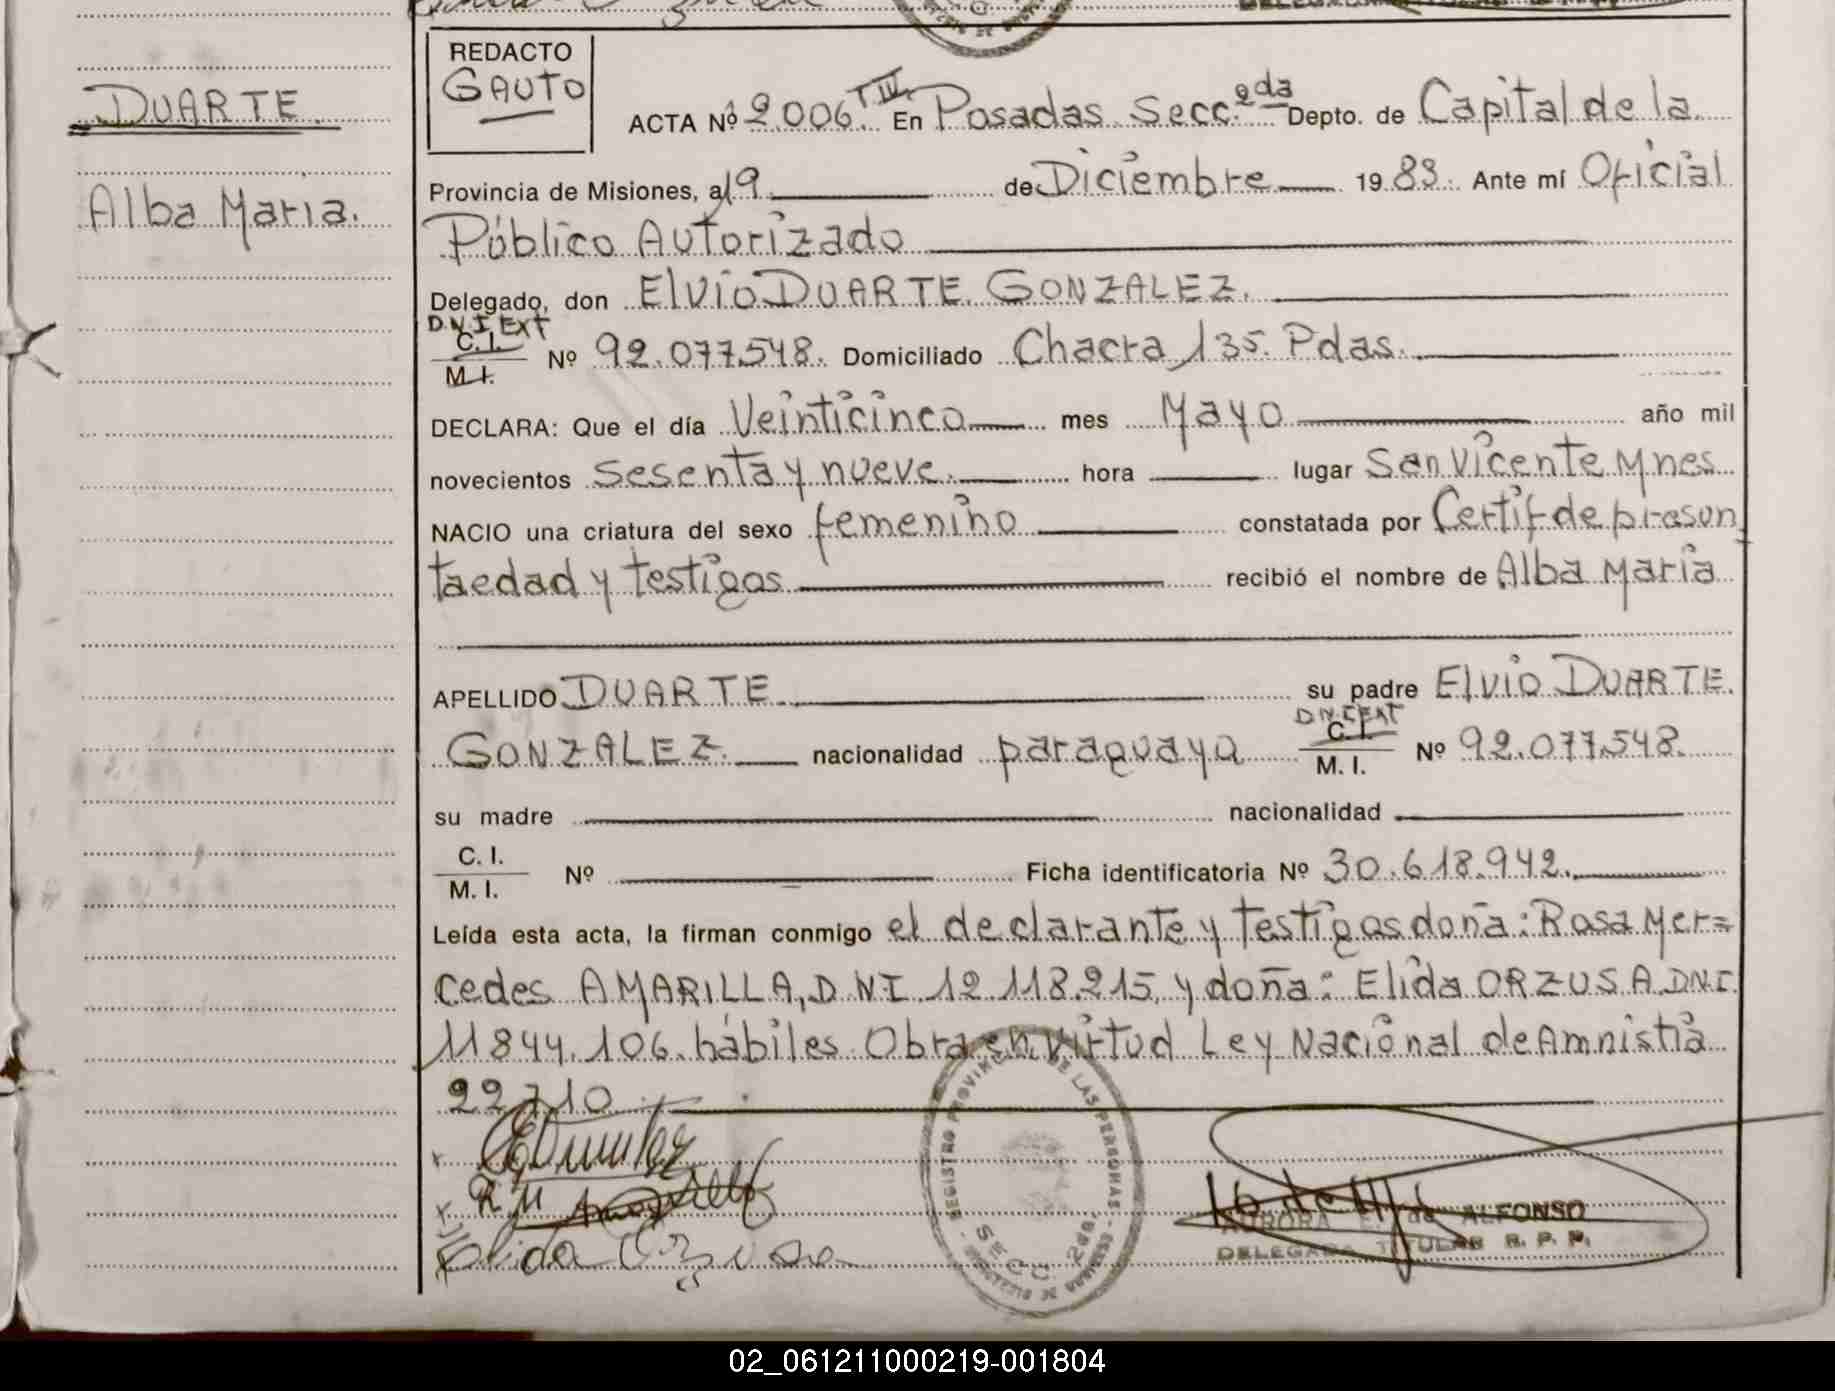 REDACTO
GAUTO
DUARTE.
Alba Maria.
ACTA Nº 2.006 TIII. En Posadas Secc. 2da Depto. de Capital de la
Provincia de Misiones, a 19 de Diciembre 19 83. Ante mí Oficial
Público Autorizado
Delegado, don Elvio DUARTE GONZALEZ.
D.N.I. EXT
C. I.
M. I.
Nº 92.077.548. Domiciliado Chacra 135. Pdas.
DECLARA: Que el día Veinticinco mes Mayo año mil
novecientos sesenta y nueve. hora lugar San Vicente Mnes
NACIO una criatura del sexo femenino constatada por Certif de presun
ta edad y testigos recibió el nombre de Alba Maria
APELLIDO DUARTE su padre Elvio DUARTE
D.N.I EXT
GONZALEZ. nacionalidad paraguaya C. I. M. I. Nº 92.077.548.
su madre nacionalidad
C. I.
M. I.
Nº Ficha identificatoria Nº 30.618.942.
Leída esta acta, la firman conmigo el declarante y testigos doña: Rosa Mer=
cedes AMARILLA, D.N.I. 12.118.215, y doña: Elida ORZUSA D.N.I.
11844.106. hábiles. Obra en virtud Ley Nacional de Amnistia
22710
Elida Orzusa
REGISTRO PROVINCIAL DE LAS PERSONAS
SECC. 2da.
AURORA E. de ALFONSO
DELEGADA TITULAR R. P. P.
02_061211000219-001804